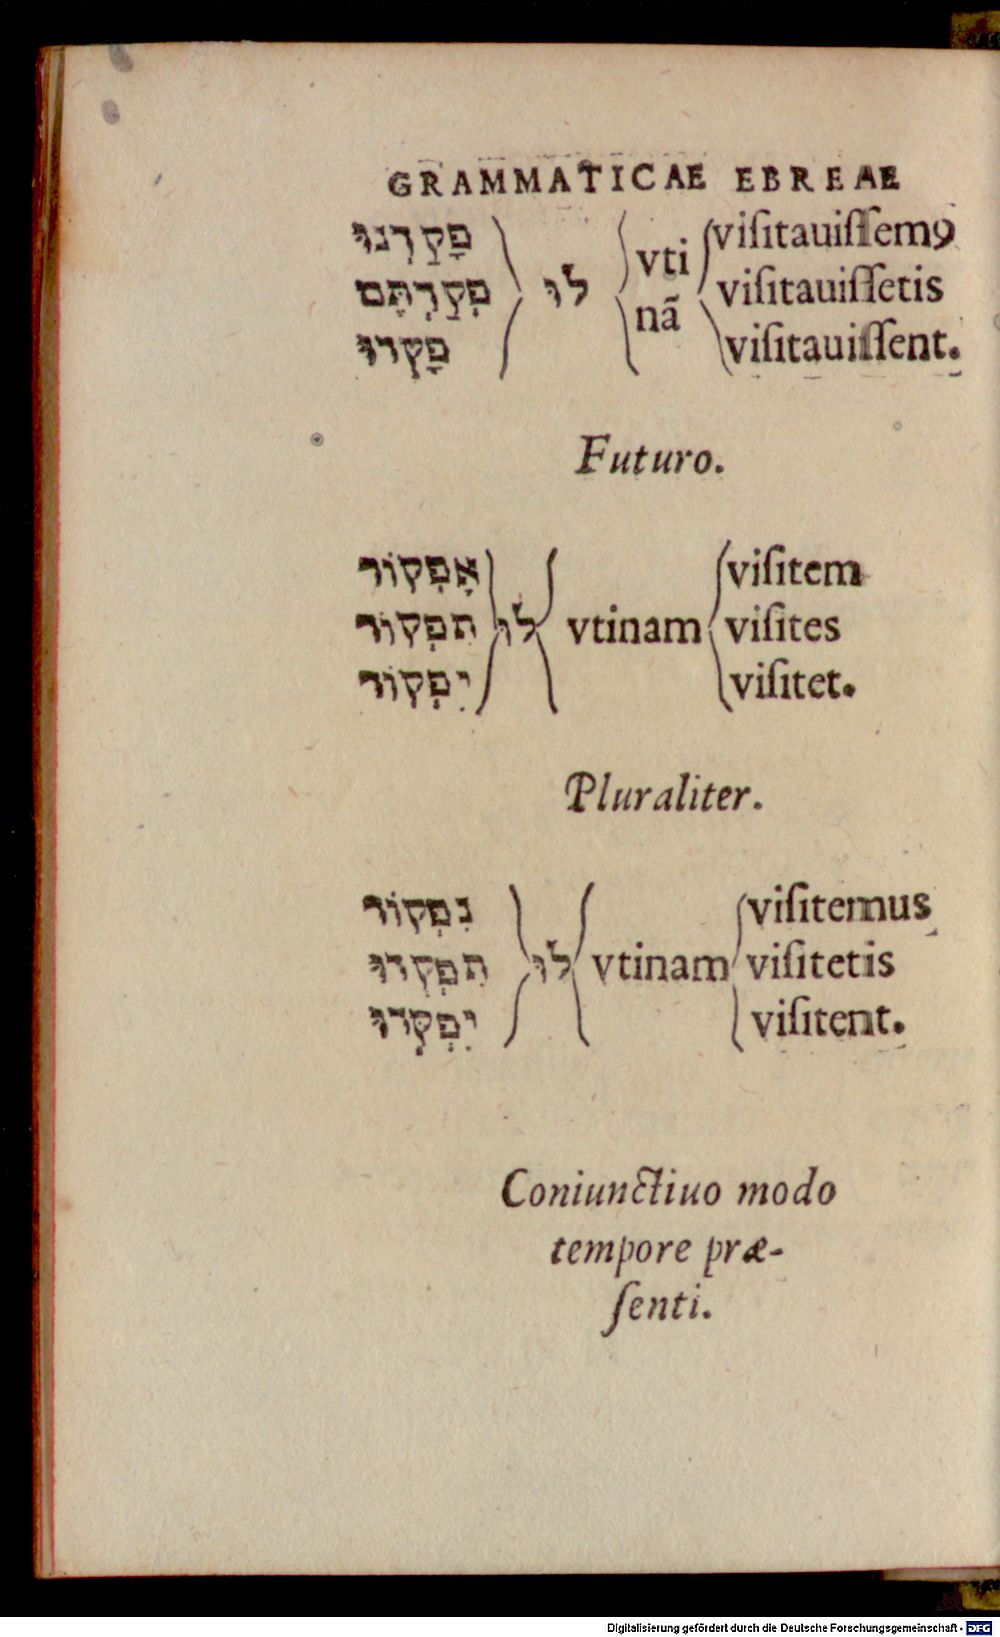 GRAMMATICAE EBREAE
פָקַדְנוּ לוּ vti viſitauiſſemꝰ
פְקַדְתֶּם nã viſitauiſſetis
פָקְדוּ viſitauiſſent.
Futuro.
אֶפְקוֹד viſitem
תִפְקוֹד לוּ vtinam viſites
יִפְקוֹד viſitet.
Pluraliter.
נִפְקוֹד viſitemus
תִפְקְדוּ לוּ vtinam viſitetis
יִפְקְדוּ viſitent.
Coniunctiuo modo
tempore præ-
ſenti.
Digitalisierung gefördert durch die Deutsche Forschungsgemeinschaft - DFG